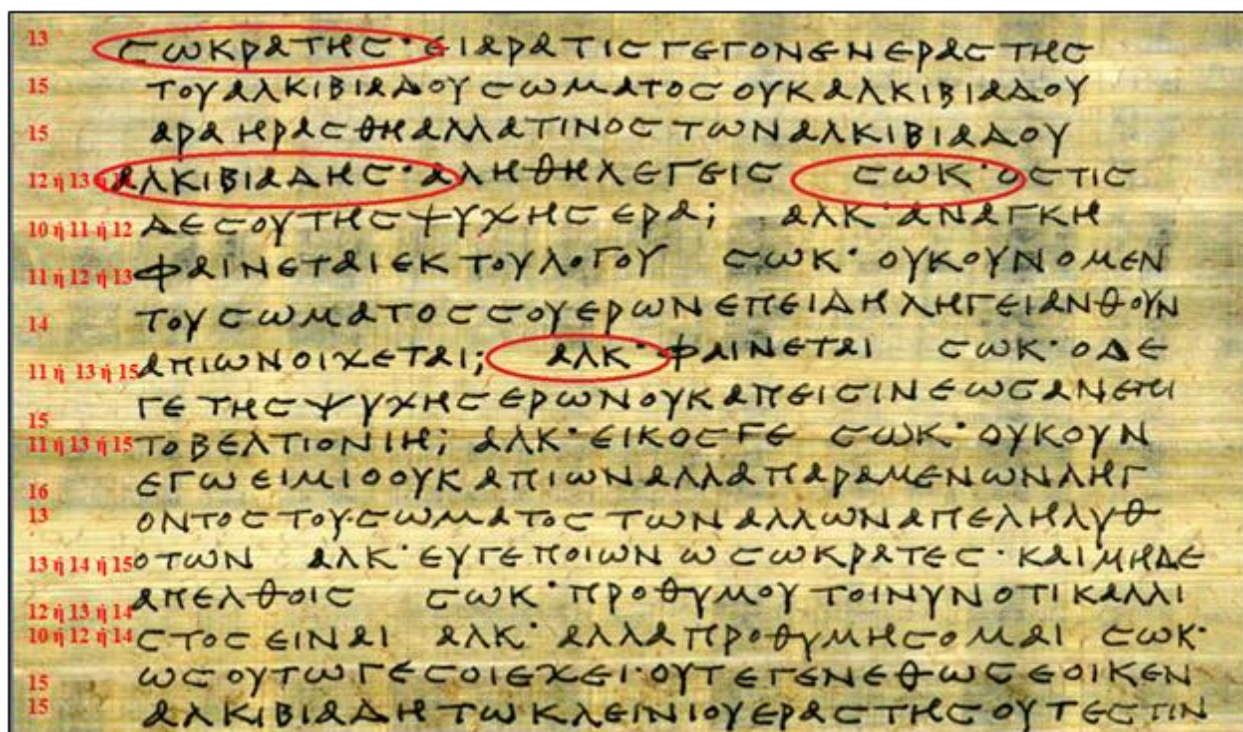 13 CωΚΡΑΤΗC· ΕΙΑΡΑΤΙCΓΕΓΟΝΕΝΕΡΑCΤΗC
15 ΤΟΥΑΛΚΙΒΙΑΔΟΥCωΜΑΤΟCΟΥΚΑΛΚΙΒΙΑΔΟΥ
15 ΑΡΑΗΡΑCΘΗΑΛΛΑΤΙΝΟCΤωΝΑΛΚΙΒΙΑΔΟΥ
12 ή 13 ή ΑΛΚΙΒΙΑΔΗC· ΑΛΗΘΗΛΕΓΕΙC CωΚ· ΟCΤΙC
10 ή 11 ή 12 ΔΕCΟΥΤΗCΨΥΧΗCΕΡΑ; ΑΛΚ· ΑΝΑΓΚΗ
11 ή 12 ή 13 ΦΑΙΝΕΤΑΙΕΚΤΟΥΛΟΓΟΥ CωΚ· ΟΥΚΟΥΝΟΜΕΝ
14 ΤΟΥCωΜΑΤΟCCΟΥΕΡωΝΕΠΕΙΔΗΛΗΓΕΙΑΝΘΟΥΝ
11 ή 13 ή 15 ΑΠΙωΝΟΙΧΕΤΑΙ; ΑΛΚ· ΦΑΙΝΕΤΑΙ CωΚ· ΟΔΕ
15 ΓΕΤΗCΨΥΧΗCΕΡωΝΟΥΚΑΠΕΙCΙΝΕωCΑΝΕΠΙ
11 ή 13 ή 15 ΤΟΒΕΛΤΙΟΝΙΗ; ΑΛΚ· ΕΙΚΟCΓΕ CωΚ· ΟΥΚΟΥΝ
16 ΕΓωΕΙΜΙΟΟΥΚΑΠΙωΝΑΛΛΑΠΑΡΑΜΕΝωΝΛΗΓ
13 ΟΝΤΟCΤΟΥ·CωΜΑΤΟCΤωΝΑΛΛωΝΑΠΕΛΗΛΥΘ
13 ή 14 ή 15 ΟΤωΝ ΑΛΚ· ΕΥΓΕΠΟΙωΝωCωΚΡΑΤΕC· ΚΑΙΜΗΔΕ
12 ή 13 ή 14 ΑΠΕΛΘΟΙC CωΚ· ΠΡΟΘΥΜΟΥΤΟΙΝΥΝΟΤΙΚΑΛΛΙ
10 ή 12 ή 14 CΤΟCΕΙΝΑΙ ΑΛΚ· ΑΛΛΑΠΡΟΘΥΜΗCΟΜΑΙ CωΚ·
15 ωCΟΥΤωΓΕCΟΙΕΧΕΙ·ΟΥΤΕΓΕΝΕΘωCΕΟΙΚΕΝ
15 ΑΛΚΙΒΙΑΔΗΤωΚΛΕΙΝΙΟΥΕΡΑCΤΗCΟΥΤΕCΤΙΝ